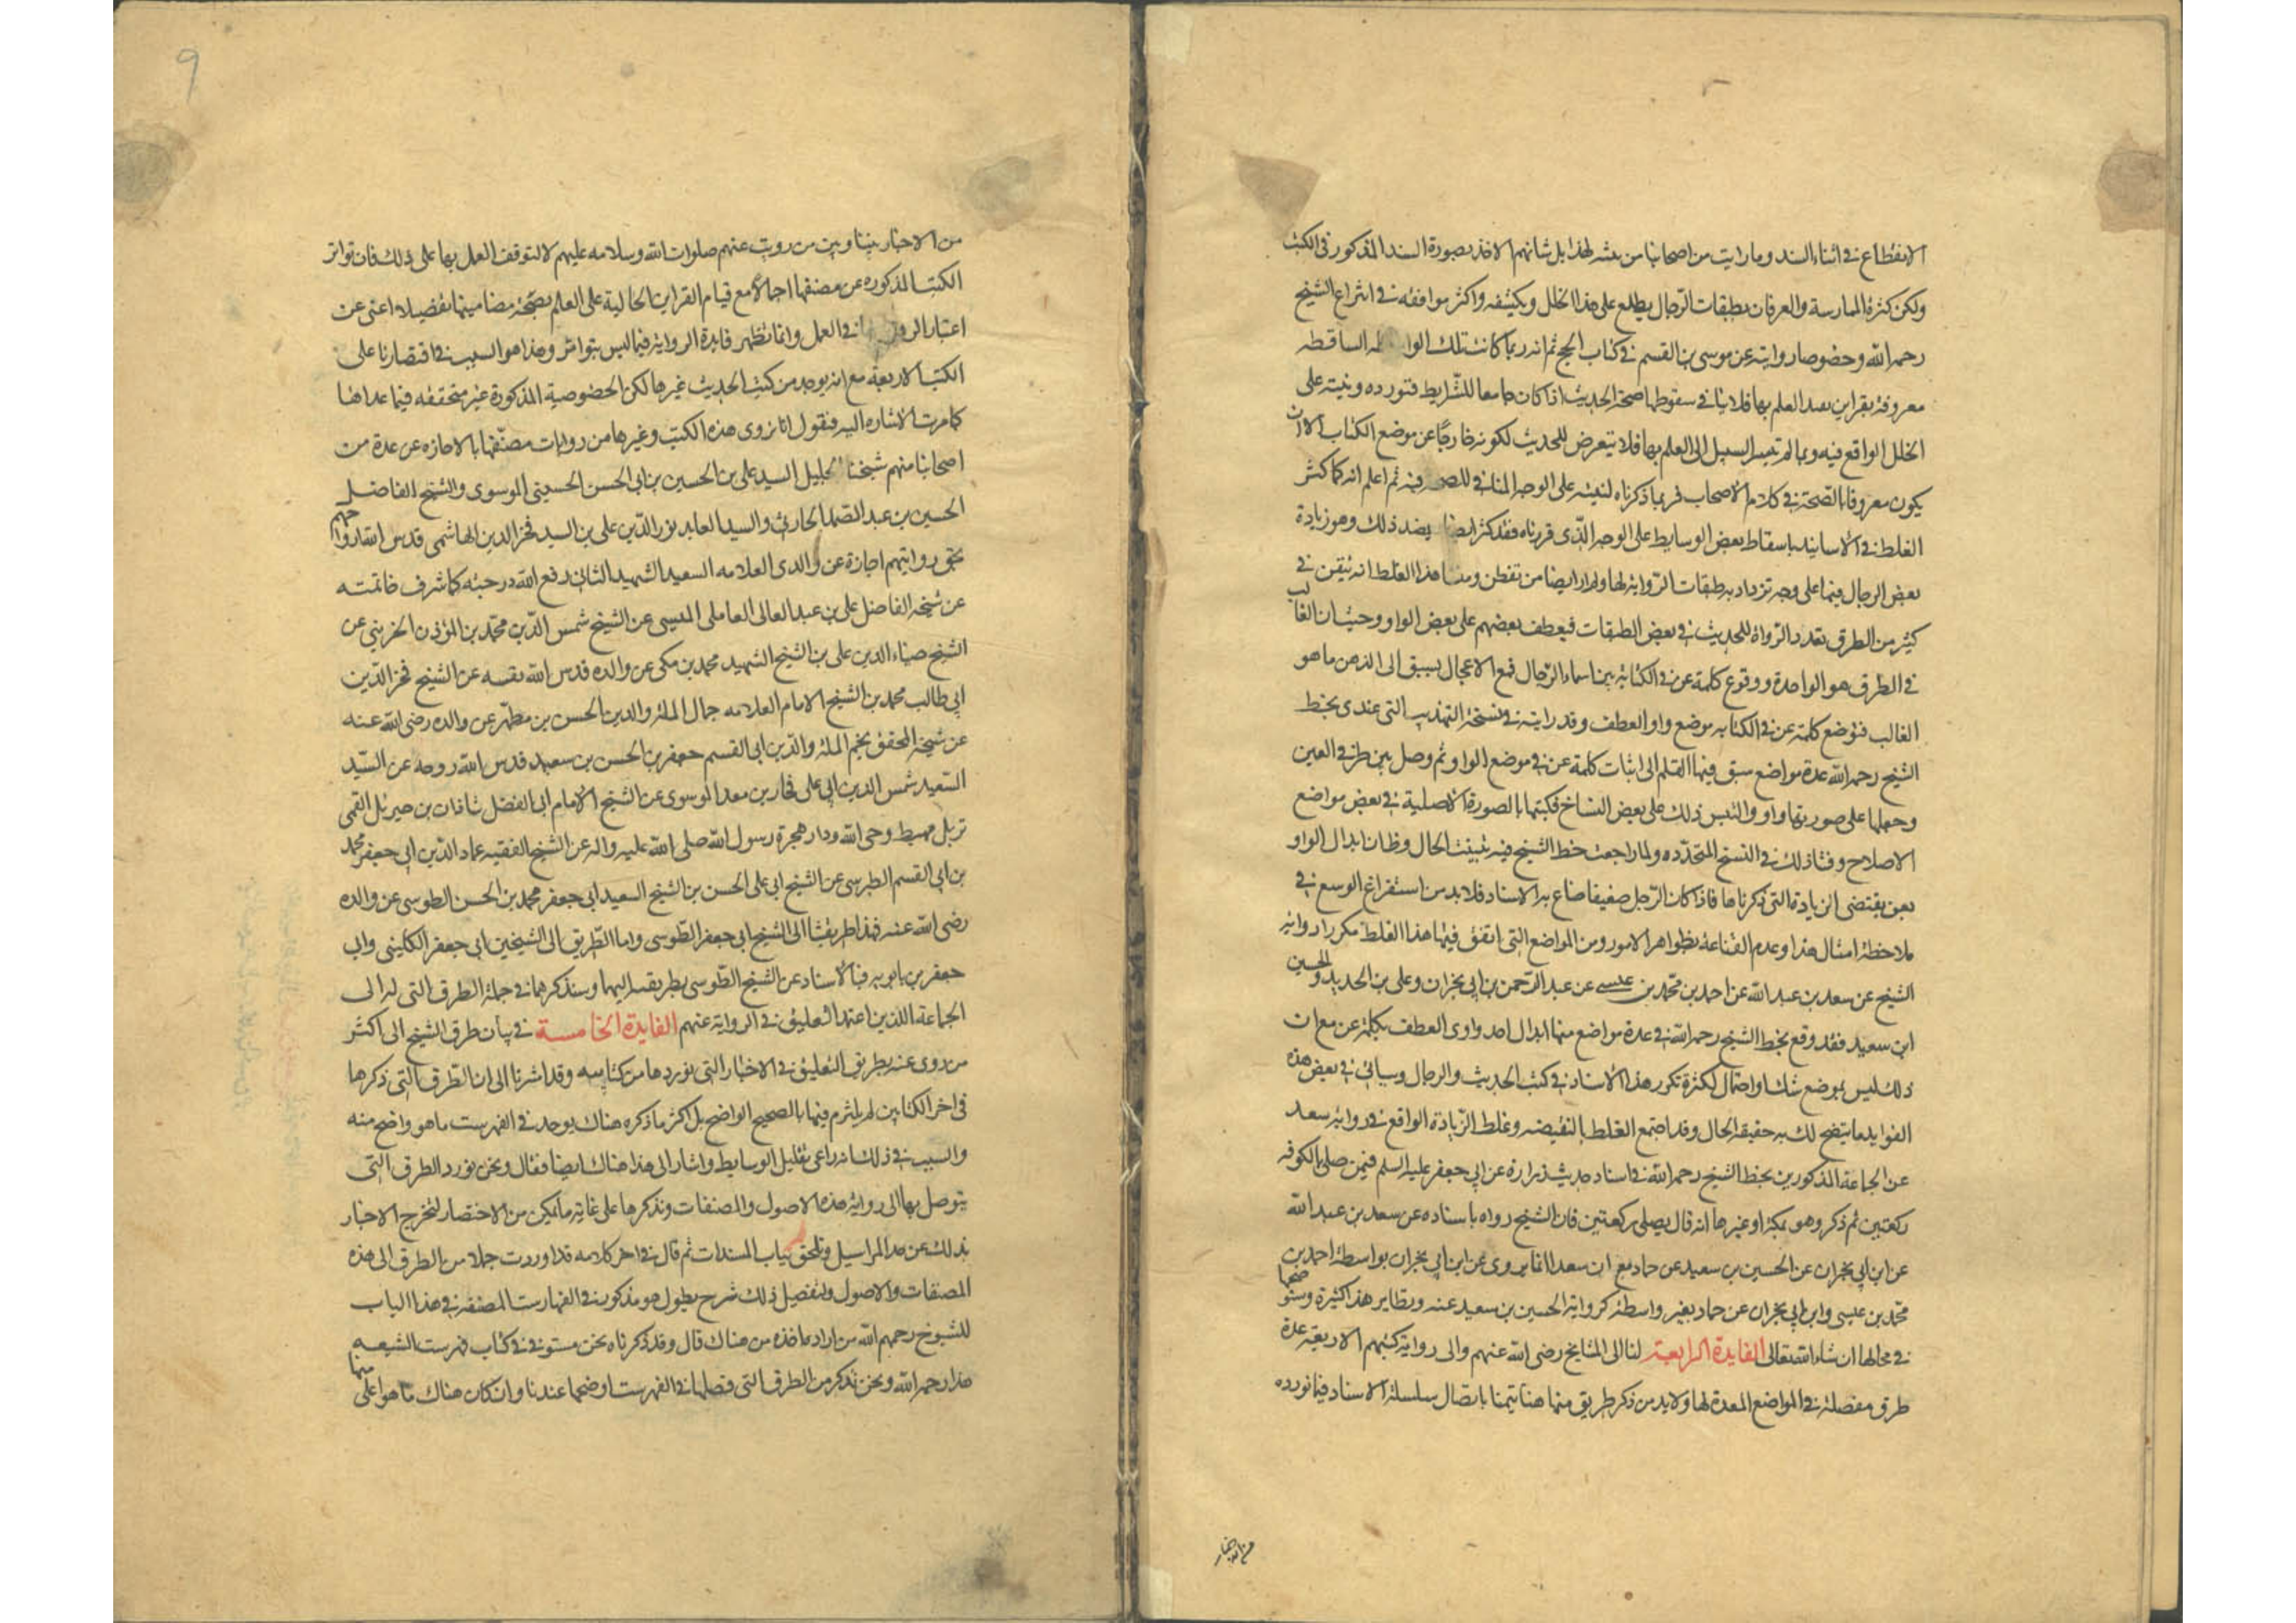 الانقطاع في اثناء السند وما رايت من اصحابنا من بتنبه لهذا بل شانهم الاخذ بصورة السند المذكور في الكتب
ولكن كثرة الممارسة والعرفان بطبقات الرجال يطلع على هذا الخلل ويكشفه واكثر مواقفه في انتزاع الشيخ
رحمه الله وخصوصا روايته عن موسى بن القسم في كتاب الحج ثم انه ربما كانت تلك الساقطه
معروفة بقراين تفيد العلم بها فلا ينافي سقوطها صحة الحديث اذا كان جامعا للشرايط فنورده وننبه على
الخلل الواقع فيه وربما لم يتيسر السبيل الى العلم بها فلا نتعرض للحديث لكونه خارجا عن موضع الكتاب الا ان
يكون معروفا بالصحة في كلام الاصحاب فربما ذكرناه لننبه على الوجه المنافي للصحه فيه ثم اعلم انه كما كثر
الغلط في الاسانيد باسقاط بعض الوسايط على الوجه الذي قررناه فقد كثر ايضا بضد ذلك وهو زيادة
بعض الرجال فيها على وجه تزداد به طبقات الرواية لها ولم ار ايضا من تفطن له ومنشا هذا الغلط انه يتفق في
كثير من الطرق تعدد الرواة للحديث في بعض الطبقات فيعطف بعضهم على بعض بالواو وحيث ان الغالب
في الطرق هو الواحدة ووقوع كلمة عن في الكتابة بين اسماء الرجال فمع الاعجال يسبق الى الذهن ما هو
الغالب فتوضع كلمة عن في الكتابه موضع واو العطف وقد رايته في نسخة التهذيب التي عندي بخط
الشيخ رحمه الله عدة مواضع سبق فيها القلم الى اثبات كلمة عن في موضع الواو ثم وصل بين طرفي العين
وجعلها على صورتها واو والتبس ذلك على بعض النساخ فكتبها بالصورة الاصلية في بعض مواضع
الاصلاح وفشا ذلك في النسخ المتجدده ولما راجعت خط الشيخ فيه تبينت الحال وظاهر ان ابدال الواو
بعن يقتضي الزيادة التي ذكرناها فاذا كان الرجل ضعيفا ضاع به الاسناد فلا بد من استفراغ الوسع في
ملاحظة امثال هذا وعدم القناعة بظواهر الامور ومن المواضع التي اتفق فيها هذا الغلط مكررا رواية
الشيخ عن سعد بن عبد الله عن احمد بن محمد بن عيسى عن عبد الرحمن بن ابي نجران وعلي بن الحديد والحسين
ابن سعيد فقد وقع بخط الشيخ رحمه الله في عدة مواضع منها ابدال احد واوي العطف بكلمة عن مع ان
ذلك ليس بموضع شك او احتمال لكثرة تكرر هذا الاسناد في كتب الحديث والرجال وسياتي في بعض هذه
الفوايد ما يتضح لك به حقيقة الحال وقد اجتمع الغلط بالنقيصه وغلط الزيادة الواقع في رواية سعد
عن الجماعة المذكورين بخط الشيخ رحمه الله في اسناد حديث زرارة عن ابي جعفر عليه السلم فيمن صلى بالكوفه
ركعتين ثم ذكر وهو بمكة او غيرها انه قال يصلي ركعتين فان الشيخ رواه باسناده عن سعد بن عبد الله
عن ابن ابي نجران عن الحسين بن سعيد عن حماد مع ان سعدا انما يروي عن ابن ابي نجران بواسطة احمد بن
محمد بن عيسى وابن ابي نجران عن حماد بغير واسطة كرواية الحسين بن سعيد عنه ونظاير هذا كثيرة وستوضحها
في محالها ان شاء الله تعالى الفايدة الرابعة لنا الى المشايخ رضي الله عنهم والى رواية كتبهم الاربعة عدة
طرق مفصلة في المواضع المعدة لها ولا بد من ذكر طريق منها هنا تيمنا باتصال سلسلة الاسناد فيما نورده
من الاخبار
9
من الاخبار بيننا وبين من رويت عنهم صلوات الله وسلامه عليهم لا لتوقف العمل بها على ذلك فان تواتر
الكتب المذكوره عن مصنفها اجمالا مع قيام القراين الحالية على العلم بصحة مضامينها تفصيلا اغنى عن
اعتبار في العمل وانما تظهر فايدة الرواية فيما ليس بتواتر وهذا هو السبب في اقتصارنا على
الكتب الاربعة مع انه يوجد من كتب الحديث غيرها لكن الخصوصية المذكورة غير متحققه فيما عداها
كما مرت الاشاره اليه فنقول انا نروي هذه الكتب وغيرها من روايات مصنفها بالاجازه عن عدة من
اصحابنا منهم شيخنا الجليل السيد علي بن الحسين بن ابي الحسن الحسيني الموسوي والشيخ الفاضل
الحسين بن عبد الصمد الحارثي والسيد العابد نور الدين علي بن السيد فخر الدين الهاشمي قدس الله ارواحهم
بحق روايتهم اجازة عن والدي العلامه السعيد الشهيد الثاني رفع الله درجته كما شرف خاتمته
عن شيخه الفاضل علي بن عبد العالي العاملي الميسي عن الشيخ شمس الدين محمد بن المؤذن الجزيني عن
الشيخ ضياء الدين علي بن الشيخ الشهيد محمد بن مكي عن والده قدس الله نفسه عن الشيخ فخر الدين
ابي طالب محمد بن الشيخ الامام العلامه جمال الملة والدين الحسن بن مطهر عن والده رضي الله عنه
عن شيخه المحقق نجم الملة والدين ابي القسم جعفر بن الحسن بن سعيد قدس الله روحه عن السيد
السعيد شمس الدين ابي علي فخار بن معد الموسوي عن الشيخ الامام ابي الفضل شاذان بن جبرئيل القمي
نزيل مهبط وحي الله ودار هجرة رسول الله صلى الله عليه واله عن الشيخ الفقيه عماد الدين ابي جعفر محمد
بن ابي القسم الطبرسي عن الشيخ ابي علي الحسن بن الشيخ السعيد ابي جعفر محمد بن الحسن الطوسي عن والده
رضي الله عنه فهذا طريقنا الى الشيخ ابي جعفر الطوسي واما الطريق الى الشيخين ابي جعفر الكليني وابي
جعفر بن بابويه فبالاسناد عن الشيخ الطوسي بطريقه اليهما وسنذكرهما في جملة الطرق التي له الى
الجماعة الذين اعتمد التعليق في الرواية عنهم الفايدة الخامسة في بيان طرق الشيخ الى اكثر
من روى عنه بطريق التعليق في الاخبار التي نوردها من كتابيه وقد اشرنا الى ان الطرق التي ذكرها
في اخر الكتابين لم يلتزم فيها بالصحيح الواضح بل اكثر ما ذكره هناك يوجد في الفهرست ما هو واضح منه
والسبب في ذلك انه راعى تقليل الوسايط واشار الى هذا هناك ايضا فقال ونحن نورد الطرق التي
يتوصل بها الى رواية هذه الاصول والمصنفات ونذكرها على غاية ما يمكن من الاختصار لتخرج الاخبار
بذلك عن حد المراسيل وتلحق بباب المسندات ثم قال في اخر كلامه قد اوردت جملا من الطرق الى هذه
المصنفات والاصول ولتفصيل ذلك شرح يطول هو مذكور في الفهارست المصنفه في هذا الباب
للشيوخ رحمهم الله من اراده اخذه من هناك قال وقد ذكرناه نحن مستوفى في كتاب فهرست الشيعه
هذا رحمه الله ونحن نذكر من الطرق التي فصلها في الفهرست اوضحها عندنا وان كان هناك ما هو اعلى منها